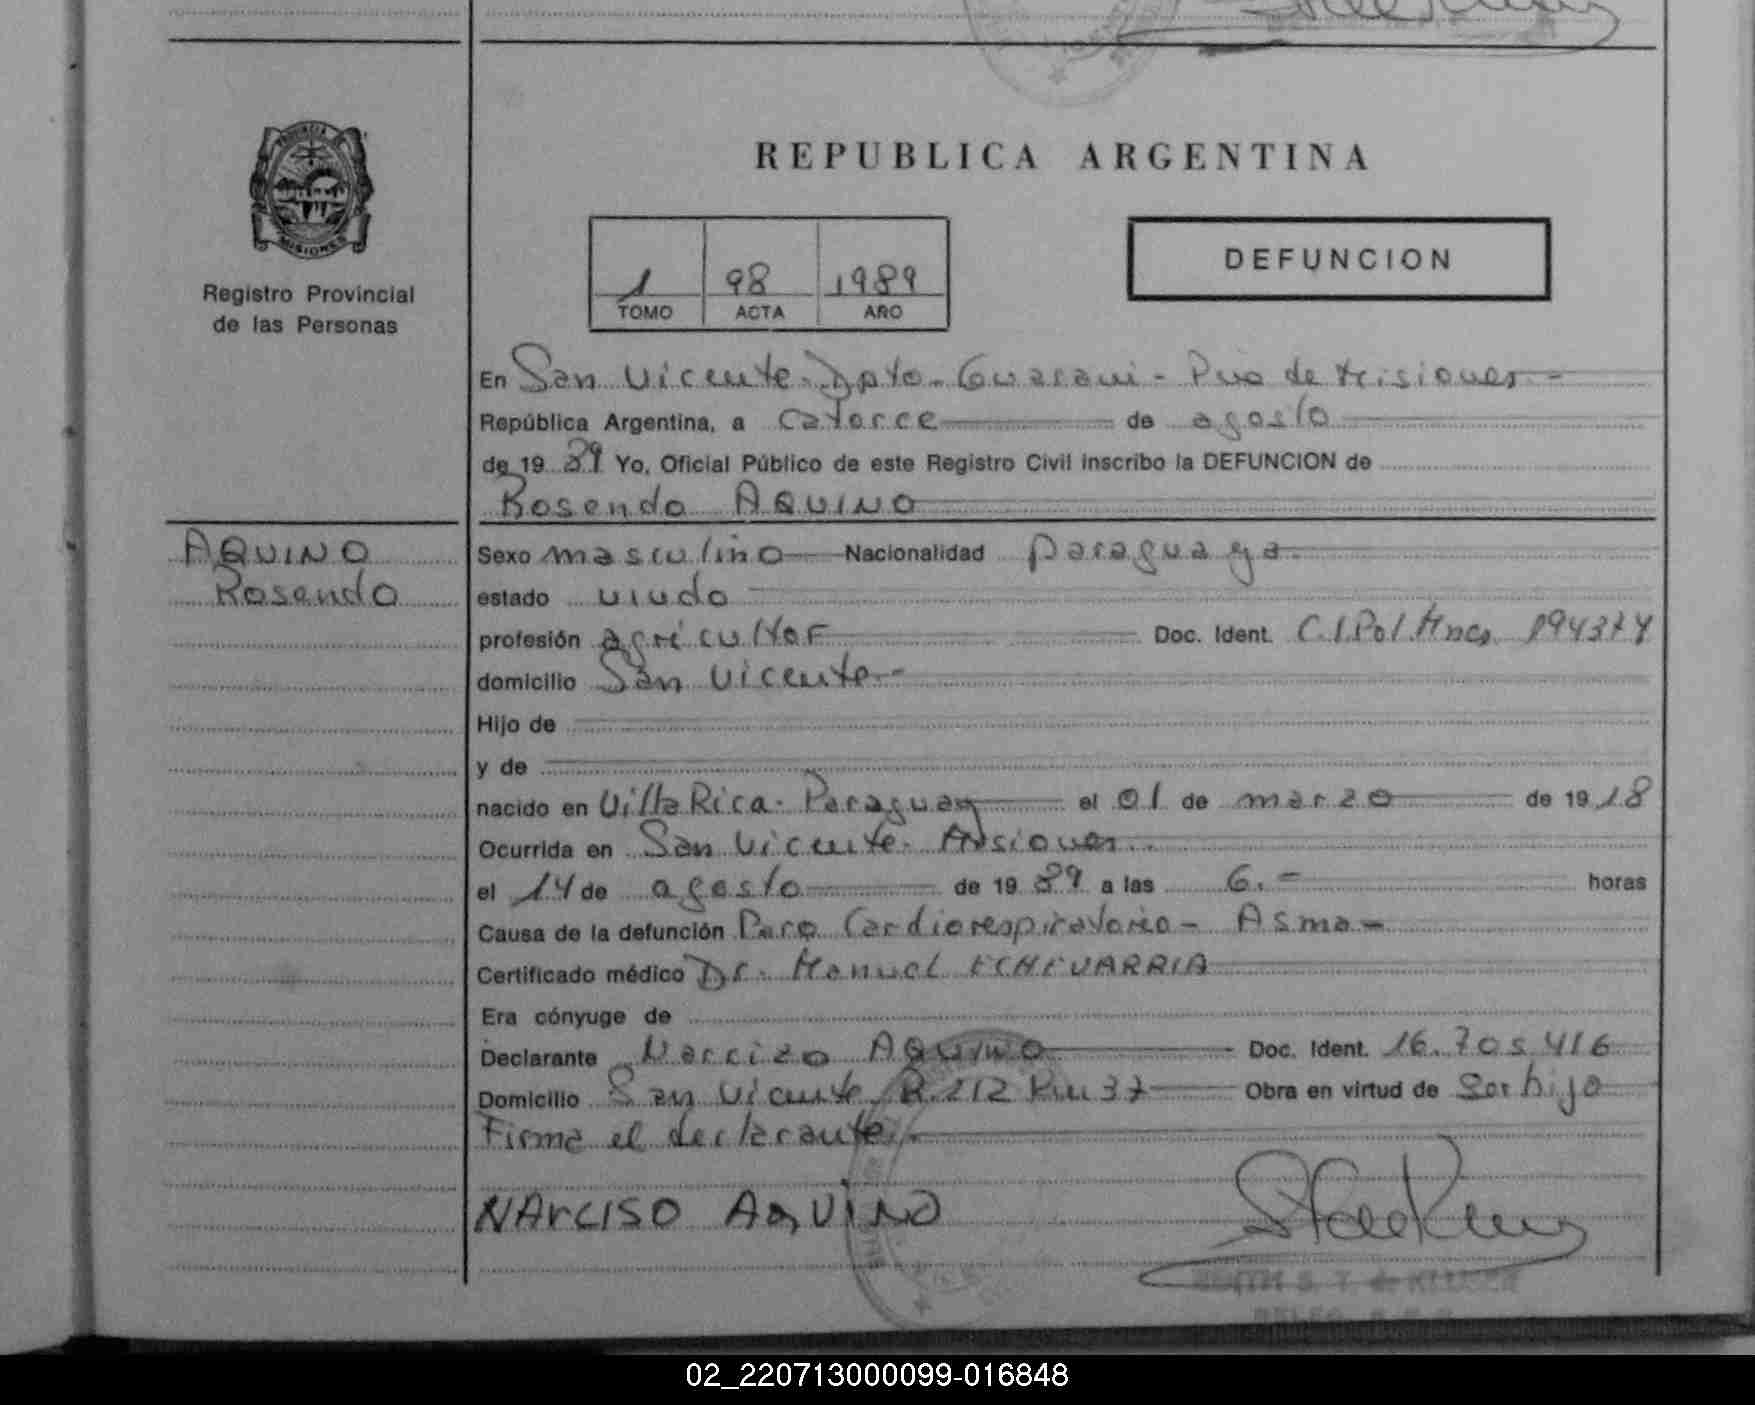 REPUBLICA ARGENTINA
PROVINCIA
MISIONES
Registro Provincial
de las Personas
1 98 1989
TOMO ACTA AÑO
DEFUNCION
En San Vicente. Dpto. Guarani - de Misiones. -
República Argentina, a catorce de agosto
de 19 89 Yo, Oficial Público de este Registro Civil inscribo la DEFUNCION de
Rosendo AQUINO
AQUINO
Rosendo
Sexo masculino Nacionalidad paraguaya.
estado viudo
profesión agricultor Doc. Ident. C.I.Pol.Mnes.
domicilio San Vicente.-
Hijo de
y de
nacido en Villa Rica. Paraguay el 01 de marzo de 19 18
Ocurrida en San Vicente. Misiones.
el 14 de agosto de 19 89 a las 6.- horas
Causa de la defunción Paro Cardiorespiratorio - Asma -
Certificado médico Dr. Manuel ECHEVARRIA
Era cónyuge de
Declarante Narcizo AQUINO Doc. Ident. 16.705.416
Domicilio San Vicente, R.212 Km 37 Obra en virtud de ser hijo
Firma el declarante.
NArciSO AQUiNO
02_220713000099-016848